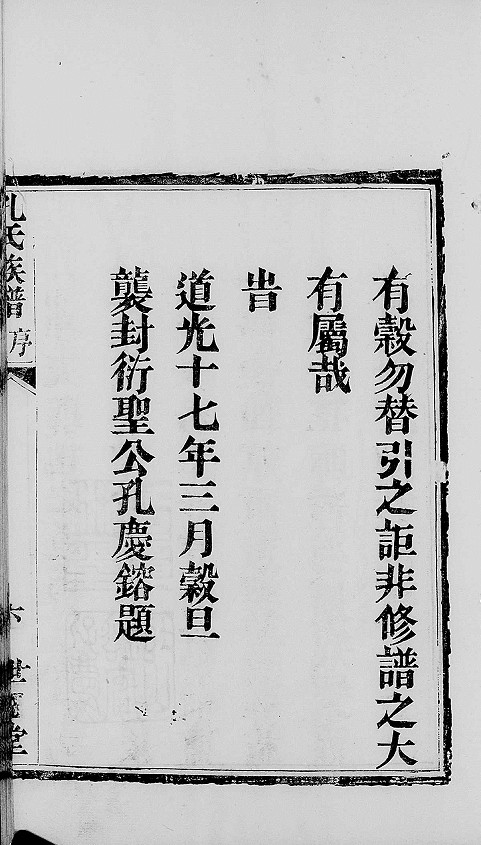 有穀勿替引之詎非修譜之大
有屬哉
旹
道光十七年三月穀旦
襲封衍聖公孔慶鎔題
孔氏族譜 序